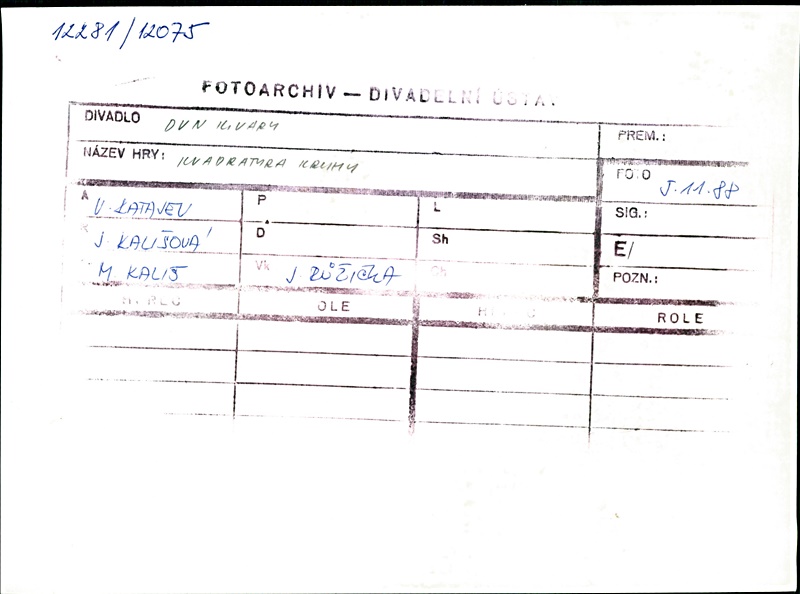 12281/12075
FOTOARCHIV — DIVADELNÍ ÚSTAV
DIVADLO DVN KIVARY
PREM.:
NÁZEV HRY: KVADRATURA KRUHU
FOTO J.11.88
A V. KATAJEV
P
L
SIG.:
J. KALIŠOVÁ
D
Sh
E/
M. KALIŠ
Vk J. RŮŽIČKA
Sh
POZN.:
HEREC ROLE HEREC ROLE